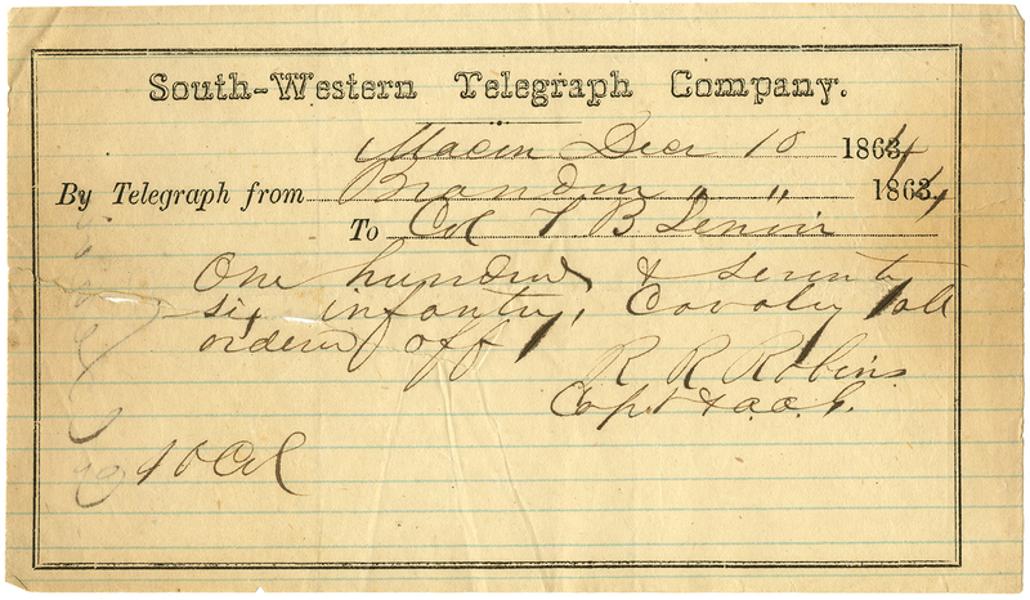 South-Western Telegraph Company.
Macon Decr 10 1864
By Telegraph from Brandon " " 1864
To Col T. B Lenoir
One hundred & seventy
six infantry, Cavalry all
ordered off
R R Robins
Capt & a.a.G.
10 Col